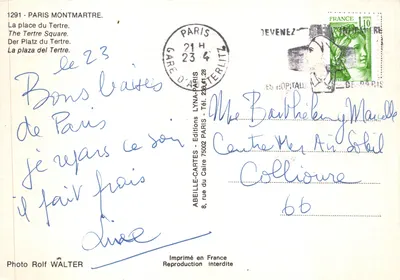 1291 - PARIS MONTMARTRE.
La place du Tertre.
The Tertre Square.
Der Platz du Tertre.
La plaza del Tertre.
le 23
Bons baisers
de Paris
je repars ce soir
il fait frais
Photo Rolf WALTER
Imprimé en France
Reproduction interdite
ABEILLE-CARTES - Editions LYNA-PARIS
8, rue du Caire 75002 PARIS - Tél. 236.41.28
PARIS
21 H
23 4
GARE D'AUSTERLITZ
DEVENEZ
INFIRMIERE
HOPITAL
DE PARIS
FRANCE
1,10
Me Barthélemy Marcelle
Centre Mer Air Soleil
Collioure
66